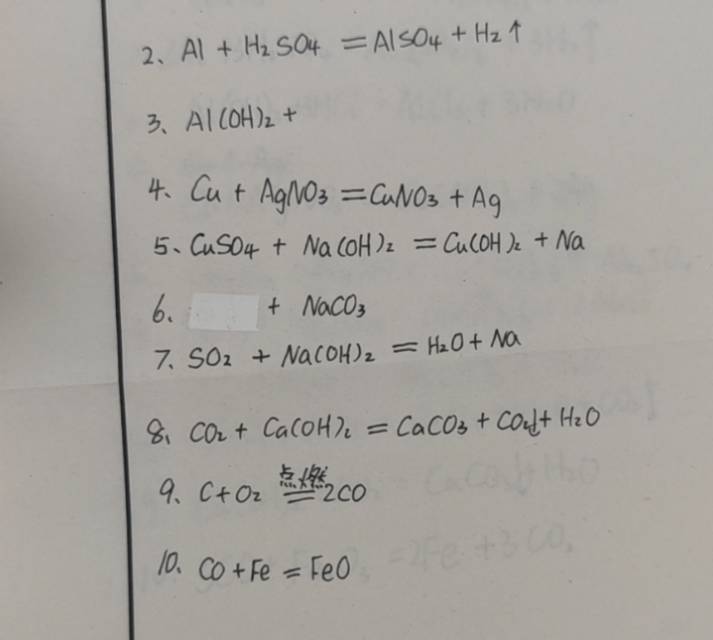 2、Al + H₂SO₄ = AlSO₄ + H₂↑
3、Al(OH)₂ +
4、Cu + AgNO₃ = CuNO₃ + Ag
5、CuSO₄ + Na(OH)₂ = Cu(OH)₂ + Na
6、 + NaCO₃
7、SO₂ + Na(OH)₂ = H₂O + Na
8、CO₂ + Ca(OH)₂ = CaCO₃ + CO₂↓ + H₂O
9、C + O₂ 点燃= 2CO
10、CO + Fe = FeO